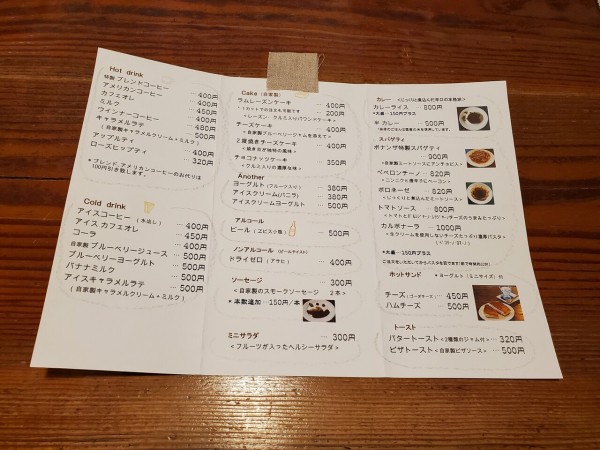 Hot drink
特製 ブレンドコーヒー … 400円
アメリカンコーヒー … 400円
カフェオレ … 450円
ミルク … 400円
ウインナーコーヒー … 480円
キャラメルラテ … 500円
（自家製キャラメルクリーム＋ミルク）
アップルティ … 400円
ローズヒップティ … 320円
* ブレンド、アメリカンコーヒーのお代りは
100円引き致します。
Cold drink
アイスコーヒー（水出し） … 400円
アイスカフェオレ … 450円
コーラ … 400円
自家製 ブルーベリージュース … 500円
ブルーベリーヨーグルト … 500円
バナナミルク … 500円
アイスキャラメルラテ … 500円
（自家製キャラメルクリーム＋ミルク）
Cake（自家製）
ラムレーズンケーキ … 400円
* 1カットでの注文も可能です … 200円
<レーズン、クルミ入りパウンドケーキ>
チーズケーキ … 400円
<自家製ブルーベリージャムを添えて>
2度焼きチーズケーキ … 400円
チョコナッツケーキ … 350円
<クルミ入りの濃厚な味>
Another
ヨーグルト（フルーツ入り） … 380円
アイスクリーム（バニラ） … 380円
アイスクリームヨーグルト … 500円
アルコール
ビール（ヱビス瓶） … 500円
ノンアルコール（ビールテイスト）
ドライゼロ（アサヒ） … 400円
ソーセージ … 300円
<自家製のスモークソーセージ 2本>
* 本数追加 …150円/本
ミニサラダ … 300円
<フルーツが入ったヘルシーサラダ>
カレー <じっくりと煮込んだ辛口の本格派>
カレーライス … 800円
*大盛…150円プラス
半カレー … 500円
スパゲティ
ボナンザ特製スパゲティ
… 900円
<自家製ミートソースにアンチョビ入>
ペペロンチーノ … 820円
<ニンニクと唐辛子にベーコン>
ボロネーゼ … 820円
<じっくりと煮込んだミートソース>
トマトソース … 800円
カルボナーラ … 1.000円
<生クリームを使用しないチーズたっぷり濃厚パスタ>
*大盛…150円プラス
ホットサンド * ヨーグルト（ミニサイズ）付
チーズ（ゴーダチーズ） … 450円
ハムチーズ … 500円
トースト
バタートースト<2種類のジャム付> … 320円
ピザトースト<自家製ピザソース> … 500円